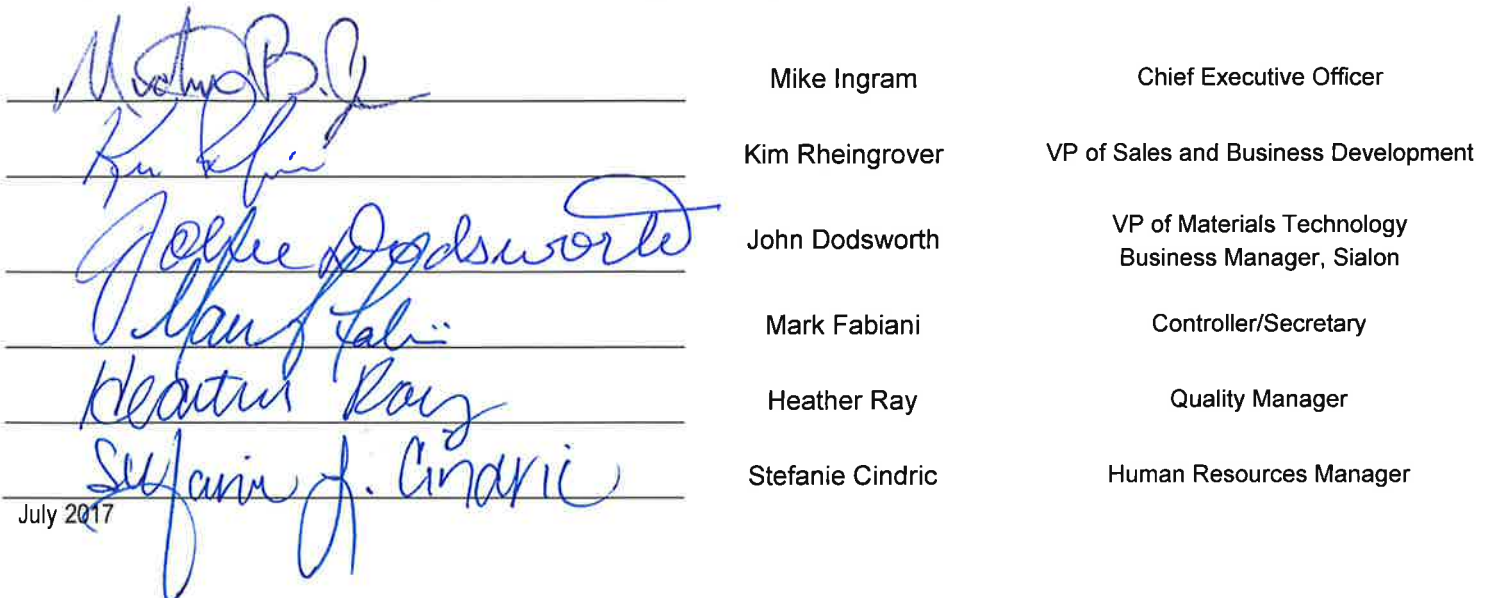 Mike Ingram Chief Executive Officer
Kim Rheingrover VP of Sales and Business Development
John Dodsworth VP of Materials Technology
Business Manager, Sialon
Mark Fabiani Controller/Secretary
Heather Ray Heather Ray Quality Manager
Stefanie J. Cindric Stefanie Cindric Human Resources Manager
July 2017